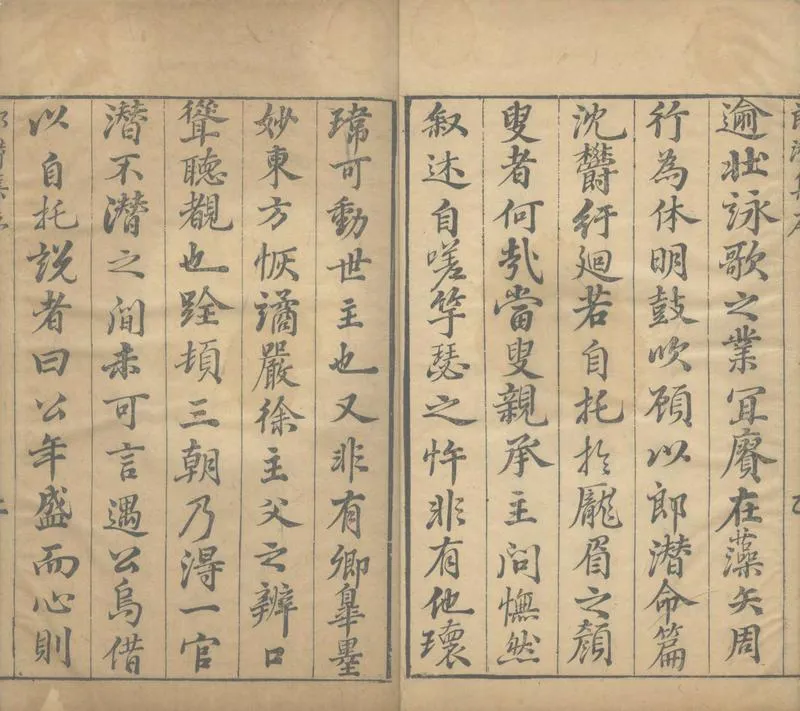 逾壯詠歌之業冝賡在藻矢周
行為休明鼓吹顧以郎潜命篇
沈欝紆廻若自托扵龎眉之顏
叟者何㢤當叟親承主問憮然
叙述自嗟竽瑟之忤非有他瓌
瑋可動世主也又非有卿皐墨
妙東方恢譎嚴徐主父之辨口
聳聽覩也跧頓三朝乃淂一官
潜不潜之間未可言遇公烏借
以自托說者曰公年盛而心則